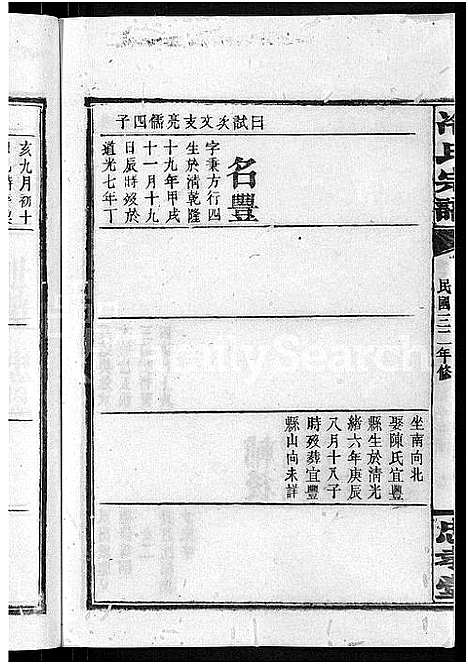 冷氏宗譜
民國三二年修
忠孝堂
曰試次文支亮儒四子
名豐
字秉方行四
生於清乾隆
十九年甲戌
十一月十九
日辰時歿於
道光七年丁
亥九月初十
坐南向北
娶陳氏宜豐
縣生於清光
緒六年庚辰
八月十八子
時歿葬宜豐
縣山向未詳
FamilySearch